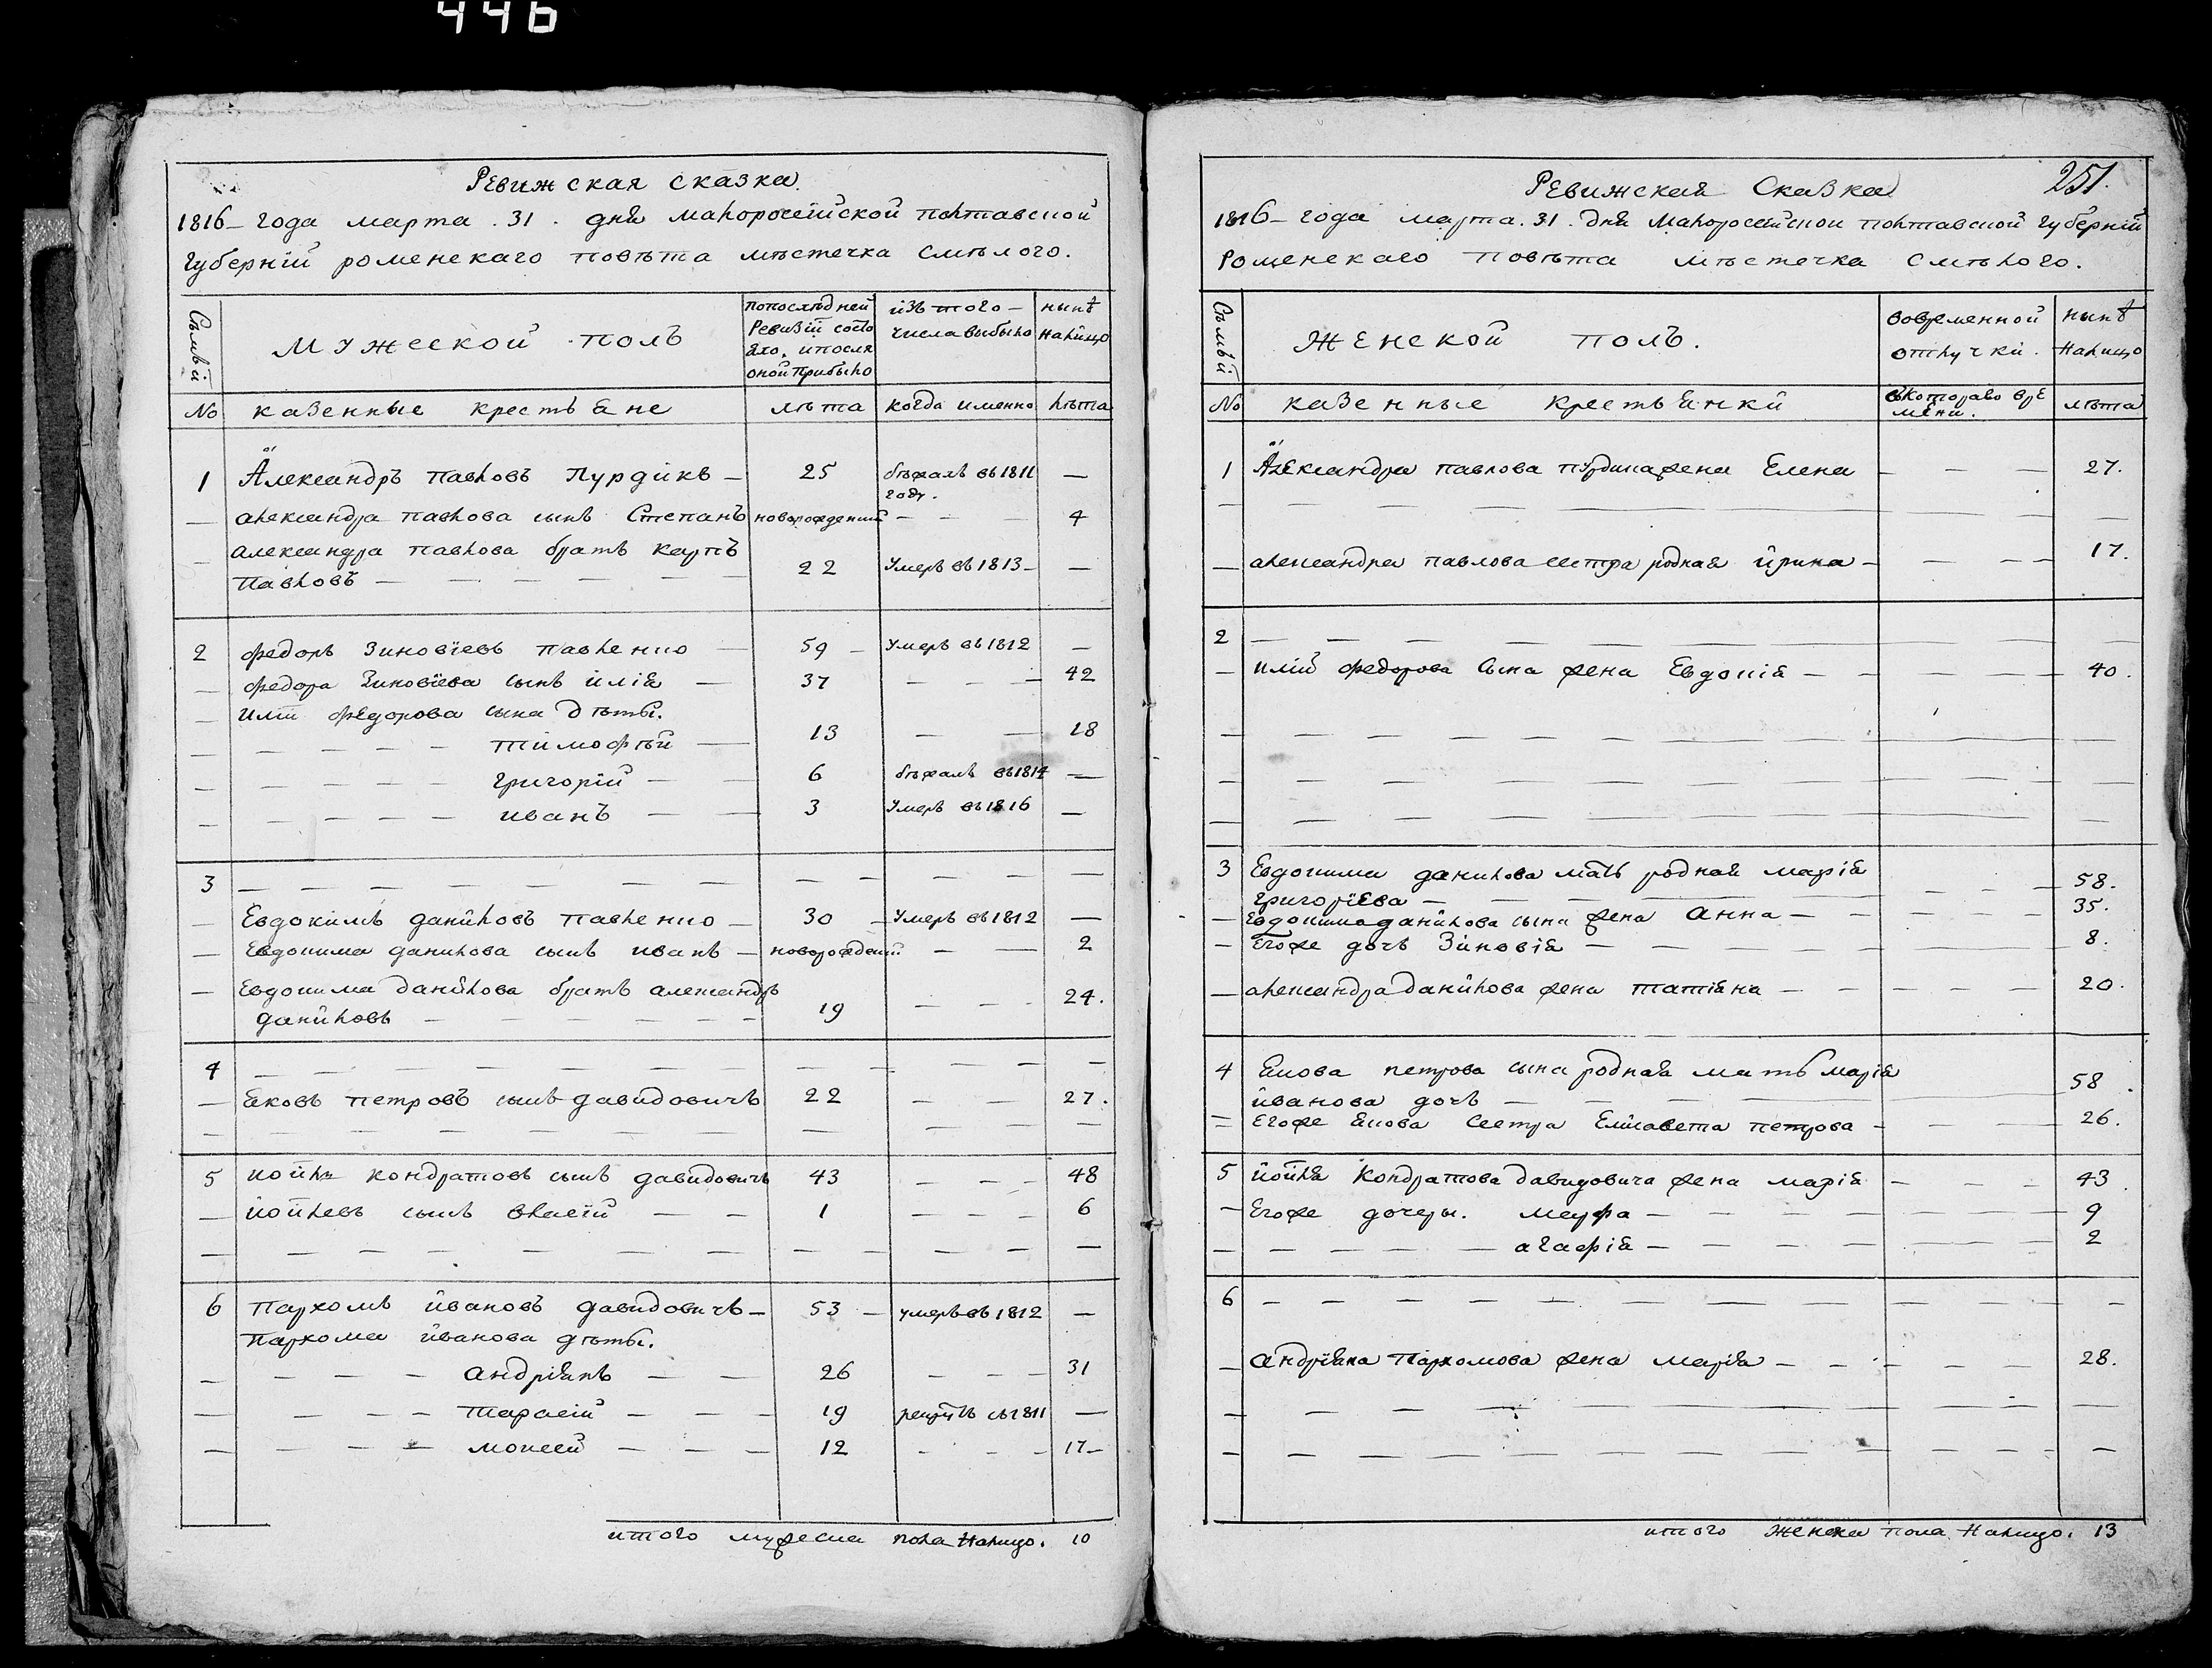 446
Ревижская сказка
1816 – года марта . 31 . дня малоросейской полтавской
губерній роменскаго повѣта мѣстечка Смѣлого.
Съмьй
мужеской полъ
попослѣдней
Ревизій состо
яло, ипосля
оной прибыло
изъ того –
числа выбыло
нынѣ
налицо
№ казенные крестьяне лѣта когда именно лѣта
1 Александръ павловъ Пурдикъ – 25 бѣжалъ въ 1811 году. —
— александра павлова сынъ Степанъ новорождений – – – 4
— александра павлова братъ карпъ
павловъ — — — — — 22 умеръ въ 1813 – —
2 федоръ Зиновіевъ павленко — 59 – умеръ въ 1812 —
— федора Зиновіева сынъ илія — 37 — — — 42
— иліи федорова сына дѣты.
— — — — — — тимофѣй — 13 — — 18
— — — — — — григорій — — 6 бѣжалъ въ 1814 —
— — — — — — иванъ — — 3 умеръ въ 1816 —
3 — — — — — — — — — — — —
— Евдокимъ даниловъ павленко — 30 – умеръ въ 1812 —
— Евдокима данилова сынъ иванъ — новорожденый — — 2
— Евдокима данилова братъ александръ
даниловъ — — — — — — 19 — — — 24.
4 — — — — — — — — — — — —
— яковъ петровъ сынъ давидовичъ 22 — — 27.
— — — — — — — — — — — — —
5 койла кондратовъ сынъ давидовичъ 43 — — — 48
— койлевъ сынъ власій — — 1 — — — 6
— — — — — — — — — — — — —
6 пархомъ ивановъ давидовичъ – 53 – умеръ въ 1812 —
пархома иванова дѣты.
— — — — — андріянъ — — 26 — — — 31
— — — — тарасій — — — 19 рекрутъ въ 1811 —
— — — — — моисей — — — 12 — — — 17 –
итого мужеска пола налицо. 10
Ревижская Сказка 251.
1816 – года марта . 31 . дня малоросейской полтавской губерній
Роменскаго повѣта мѣстечка Смѣлого.
Съмьй
женской полъ.
вовременной
отлучки.
нынѣ
налицо
№ казенные крестьянки съкотораво вре
мени. лѣта
1 Александра павлова пурдика жена Елена — — — 27.
— — — — — — — — — —
— александра павлова сестра родная ирина — — — — 17.
2 — — — — — — — — —
— иліи федорова сына жена Евдокія — — — — — 40.
— — — — — — — — — — — — —
— — — — — — — — — — — — —
— — — — — — — — — — — — —
3 Евдокима данилова мать родная марія
григоріева — — — — — — — 58.
— Евдокима данилова сына жена анна — — — — — 35.
— Егоже дочь Зиновія — — — — — — — 8.
— александра данилова жена татіяна — — — — — 20.
4 якова петрова сына родная мать марія
иванова дочь — — — — — 58.
= Егоже якова сестра Елисавета петрова — — — 26.
5 койла Кондратова давидовича жена марія — — — 43
— Егоже дочеры. марфа — — — — — — — 9
— — — — — — агафія — — — — — — — 2
6 — — — — — — — — — — — — —
— андріяна пархомова жена марія — — — — — 28.
— — — — — — — — — — — — —
— — — — — — — — — — — — —
итого женска пола налицо. 13